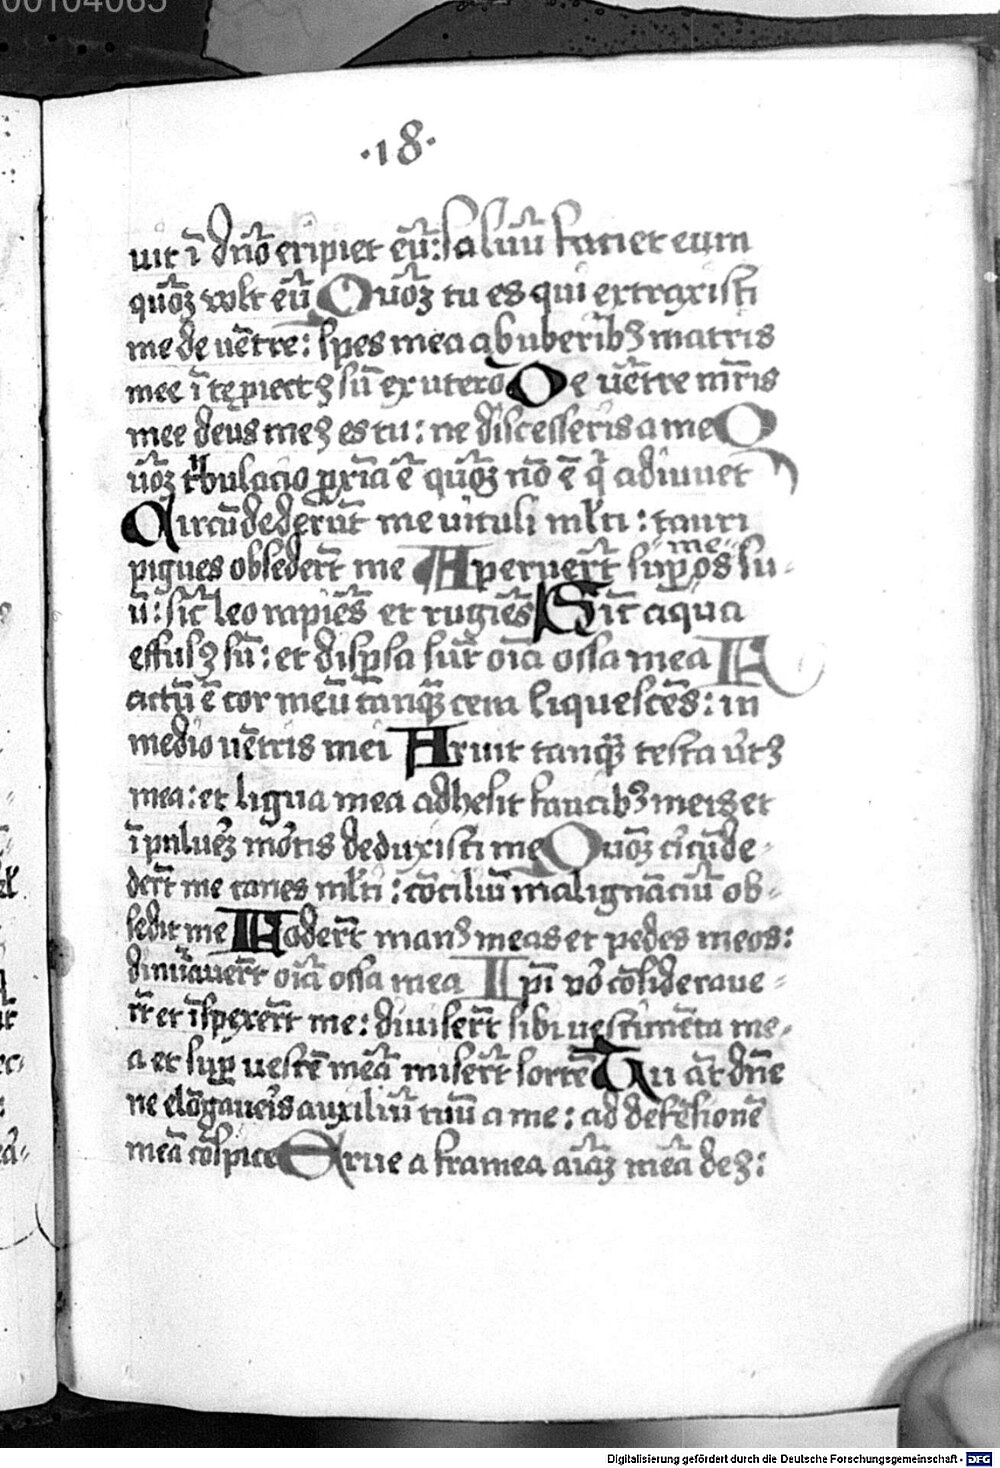 00104065
·18·
uit ī dn̄o eripiet eū: saluū faciet eum
quō₃ vult eū Quō₃ tu es qui extraxisti
me de uētre: spes mea ab uberib₃ matris
mee ī te piect₃ sū ex utero De uētre mr̄is
mee deus me₃ es tu: ne discesseris a me Q
uō₃ tribulacio ꝓxīa ē quō₃ nō ē q̄ adiuuet
Circūdederūt me uituli ml̄ti: tauri
pīgues obsederūt me Aperuer̄t suꝑ me os su-
ū: sic̄ leo rapiēs et rugiēs Sic̄ aqua
effus₃ sū: et disꝑsa sūt oīa ossa mea F
actū ē cor meū tanq̄₃ cera liquescēs: in
medio uētris mei Aruit tanq̄₃ testa uirt₃
mea: et ligua mea adhesit faucib₃ meis et
ī puluer₃ mortis deduxisti me Quō₃ circūde-
der̄t me canes ml̄ti: cōciliū malignāciū ob-
sedit me Foder̄t man₃ meas et pedes meos:
dinūauer̄t oīa ossa mea Ipī vō cōsideraue-
rt̄ et īspexer̄t me: diuiser̄t sibi uestimēta me-
a et suꝑ uestē meā miser̄t sortē Tu āt dn̄e
ne elōgaueris auxiliū tuū a me: ad defēsionē
meā cōspice Erue a framea aīa₃ meā de₃:
Digitalisierung gefördert durch die Deutsche Forschungsgemeinschaft - DFG